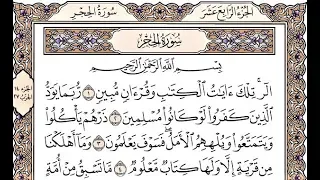 الجزء الرابع عشر
سورة الحجر
سورة الحجر
بِسْمِ اللَّهِ الرَّحْمَٰنِ الرَّحِيمِ
الٓر ۚ تِلْكَ ءَايَٰتُ ٱلْكِتَٰبِ وَقُرْءَانٍ مُّبِينٍ ١ رُّبَمَا يَوَدُّ
ٱلَّذِينَ كَفَرُوا۟ لَوْ كَانُوا۟ مُسْلِمِينَ ٢ ذَرْهُمْ يَأْكُلُوا۟
وَيَتَمَتَّعُوا۟ وَيُلْهِهِمُ ٱلْأَمَلُ ۖ فَسَوْفَ يَعْلَمُونَ ٣ وَمَآ أَهْلَكْنَا
مِن قَرْيَةٍ إِلَّا وَلَهَا كِتَابٌ مَّعْلُومٌ ٤ مَّا تَسْبِقُ مِنْ أُمَّةٍ